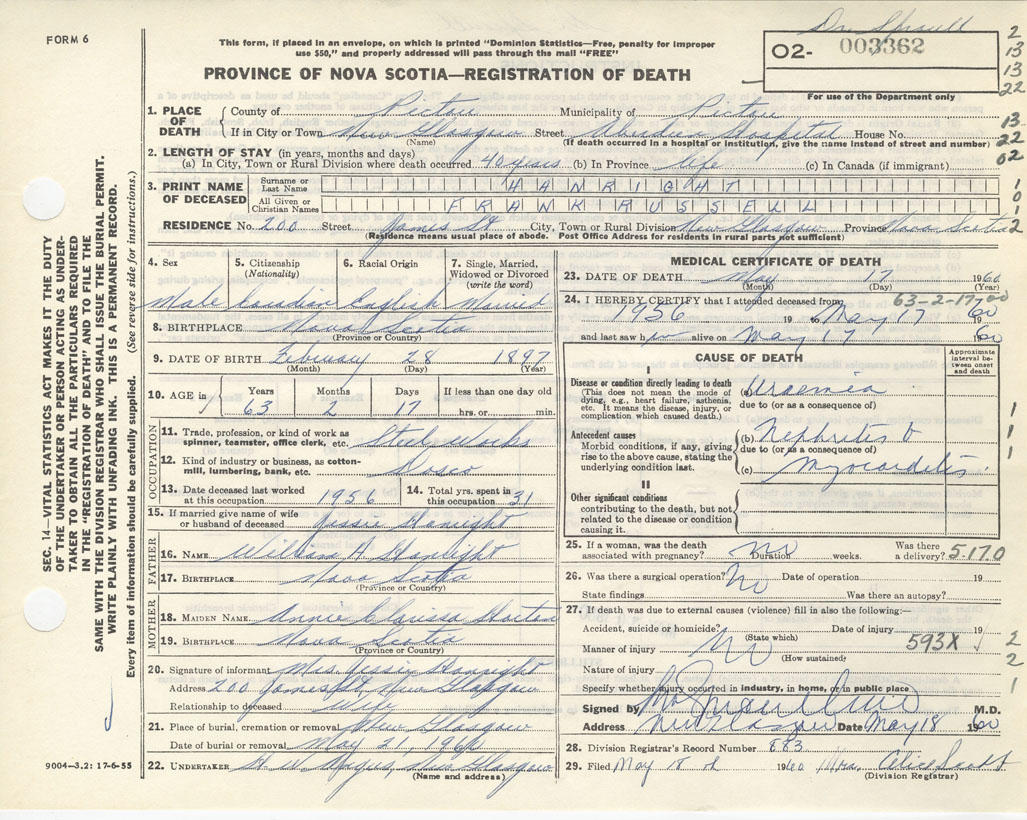 FORM 6
This form, if placed in an envelope, on which is printed "Dominion Statistics—Free, penalty for improper
use $50," and properly addressed will pass through the mail "FREE"
PROVINCE OF NOVA SCOTIA—REGISTRATION OF DEATH
O2- 003362
For use of the Department only
2
13
13
22
13
22
02
1
0
1
2
1. PLACE OF DEATH
County of Pictou Municipality of Pictou
If in City or Town New Glasgow Street Aberdeen Hospital House No.
(Name) (If death occurred in a hospital or institution, give the name instead of street and number)
2. LENGTH OF STAY (in years, months and days)
(a) In City, Town or Rural Division where death occurred 40 years (b) In Province life (c) In Canada (if immigrant)
3. PRINT NAME OF DECEASED
Surname or Last Name HANRIGHT
All Given or Christian Names FRANK RUSSELL
RESIDENCE No. 200 Street James St City, Town or Rural Division New Glasgow Province Nova Scotia
(Residence means usual place of abode. Post Office Address for residents in rural parts not sufficient)
4. Sex 5. Citizenship (Nationality) 6. Racial Origin 7. Single, Married, Widowed or Divorced (write the word)
Male Canadian English Married
8. BIRTHPLACE Nova Scotia
(Province or Country)
9. DATE OF BIRTH February 28 1897
(Month) (Day) (Year)
10. AGE in Years Months Days If less than one day old
63 2 17 hrs. or min.
OCCUPATION
11. Trade, profession, or kind of work as spinner, teamster, office clerk, etc. Steel Works
12. Kind of industry or business, as cotton-mill, lumbering, bank, etc.
13. Date deceased last worked at this occupation 1956 14. Total yrs. spent in this occupation 31
15. If married give name of wife or husband of deceased Jessie Hanright
FATHER
16. NAME William A. Hanright
17. BIRTHPLACE Nova Scotia
(Province or Country)
MOTHER
18. MAIDEN NAME Annie Clarissa
19. BIRTHPLACE Nova Scotia
(Province or Country)
20. Signature of informant Mrs. Jessie Hanright
Address 200 James St, New Glasgow
Relationship to deceased Wife
21. Place of burial, cremation or removal New Glasgow
Date of burial or removal May 21, 1960
22. UNDERTAKER H. W. Angus, New Glasgow
(Name and address)
MEDICAL CERTIFICATE OF DEATH
23. DATE OF DEATH May 17 1960
(Month) (Day) (Year)
24. I HEREBY CERTIFY that I attended deceased from 63-2-17-00
1956 19 to May 17 1960
and last saw h alive on May 17 1960
CAUSE OF DEATH
Approximate interval between onset and death
I
Disease or condition directly leading to death (a) Uraemia
(This does not mean the mode of dying, e.g., heart failure, asthenia, etc. It means the disease, injury, or complication which caused death.)
due to (or as a consequence of)
Antecedent causes (b) Nephritis &
Morbid conditions, if any, giving rise to the above cause, stating the underlying condition last.
due to (or as a consequence of)
(c) Myocarditis
II
Other significant conditions
contributing to the death, but not related to the disease or condition causing it.
1
1
1
25. If a woman, was the death associated with pregnancy? No Duration weeks. Was there a delivery? 5-17.0
26. Was there a surgical operation? No Date of operation 19
State findings Was there an autopsy?
27. If death was due to external causes (violence) fill in also the following:—
Accident, suicide or homicide? Date of injury 19
(State which)
Manner of injury No 593X
(How sustained)
Nature of injury
Specify whether injury occurred in industry, in home, or in public place
2
2
1
Signed by M.D.
Address New Glasgow Date May 18 1960
28. Division Registrar's Record Number 883
29. Filed May 18 1960 Mrs. Alice Scott
(Division Registrar)
SEC. 14—VITAL STATISTICS ACT MAKES IT THE DUTY
OF THE UNDERTAKER OR PERSON ACTING AS UNDER-
TAKER TO OBTAIN ALL THE PARTICULARS REQUIRED
IN THE "REGISTRATION OF DEATH" AND TO FILE THE
SAME WITH THE DIVISION REGISTRAR WHO SHALL ISSUE THE BURIAL PERMIT.
WRITE PLAINLY WITH UNFADING INK. THIS IS A PERMANENT RECORD.
Every item of information should be carefully supplied. (See reverse side for instructions.)
9004—3.2: 17-6-55